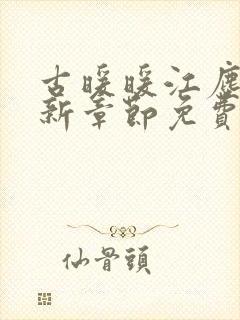 古暖暖江塵
新章節免費
仙骨頭